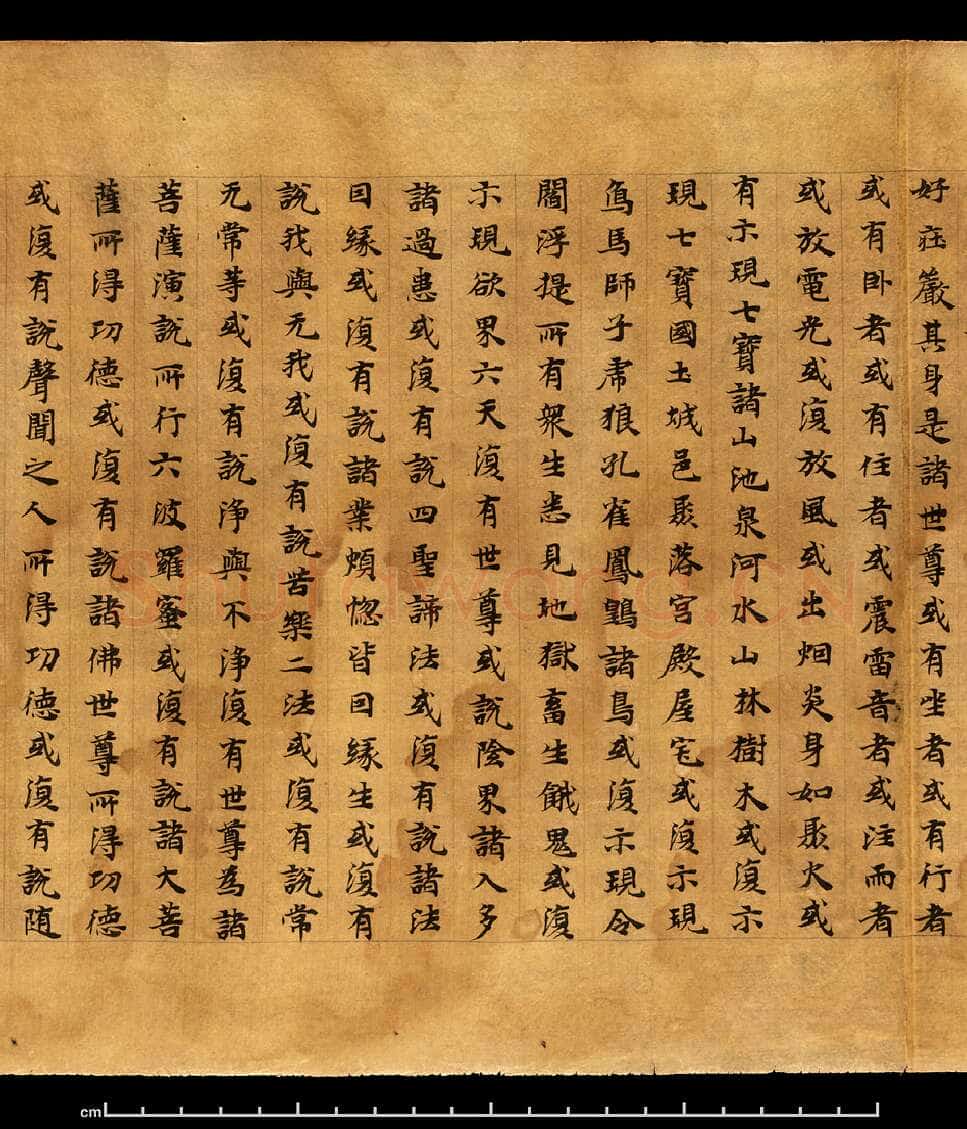 好庄嚴其身是諸世尊或有坐者或有行者
或有卧者或有住者或震雷音者或注雨者
或放電光或復放風或出烟炎身如聚火或
有示現七寶諸山池泉河水山林樹木或復示
現七寶國土城邑聚落宮殿屋宅或復示現
象馬師子虎狼孔雀鳳凰諸鳥或復示現令
閻浮提所有衆生悉見地獄畜生餓鬼或復
示現欲界六天復有世尊或說陰界諸入多
諸過患或復有說四聖諦法或復有說諸法
因緣或復有說諸業煩惱皆因緣生或復有
說我與无我或復有說苦樂二法或復有說常
无常等或復有說淨與不淨復有世尊為諸
菩薩演說所行六波羅蜜或復有說諸大菩
薩所得功德或復有說諸佛世尊所得功德
或復有說聲聞之人所得功德或復有說随
Shufawang.CN
cm